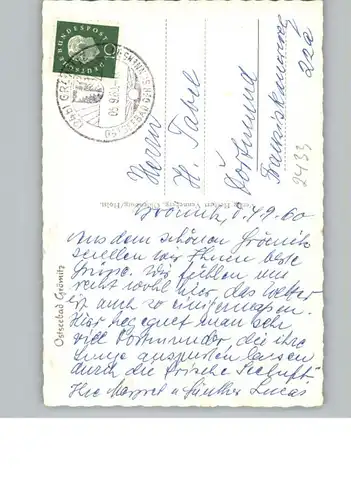 DEUTSCHE BUNDESPOST
Herrn
H. Tabel
Dortmund
22a
2433
Ostseebad Grömitz
Grömitz, d. 4.9.60
Aus dem schönen Grömitz
senden wir Ihnen beste
Grüße. Wir fühlen uns
recht wohl hier, das Wetter
ist auch so einigermaßen.
Hier begegnet man sehr
viel Dortmunder, die ihre
Lunge auspusten lassen
durch die frische Seeluft.
Ihre Margret u. Günther Lucas